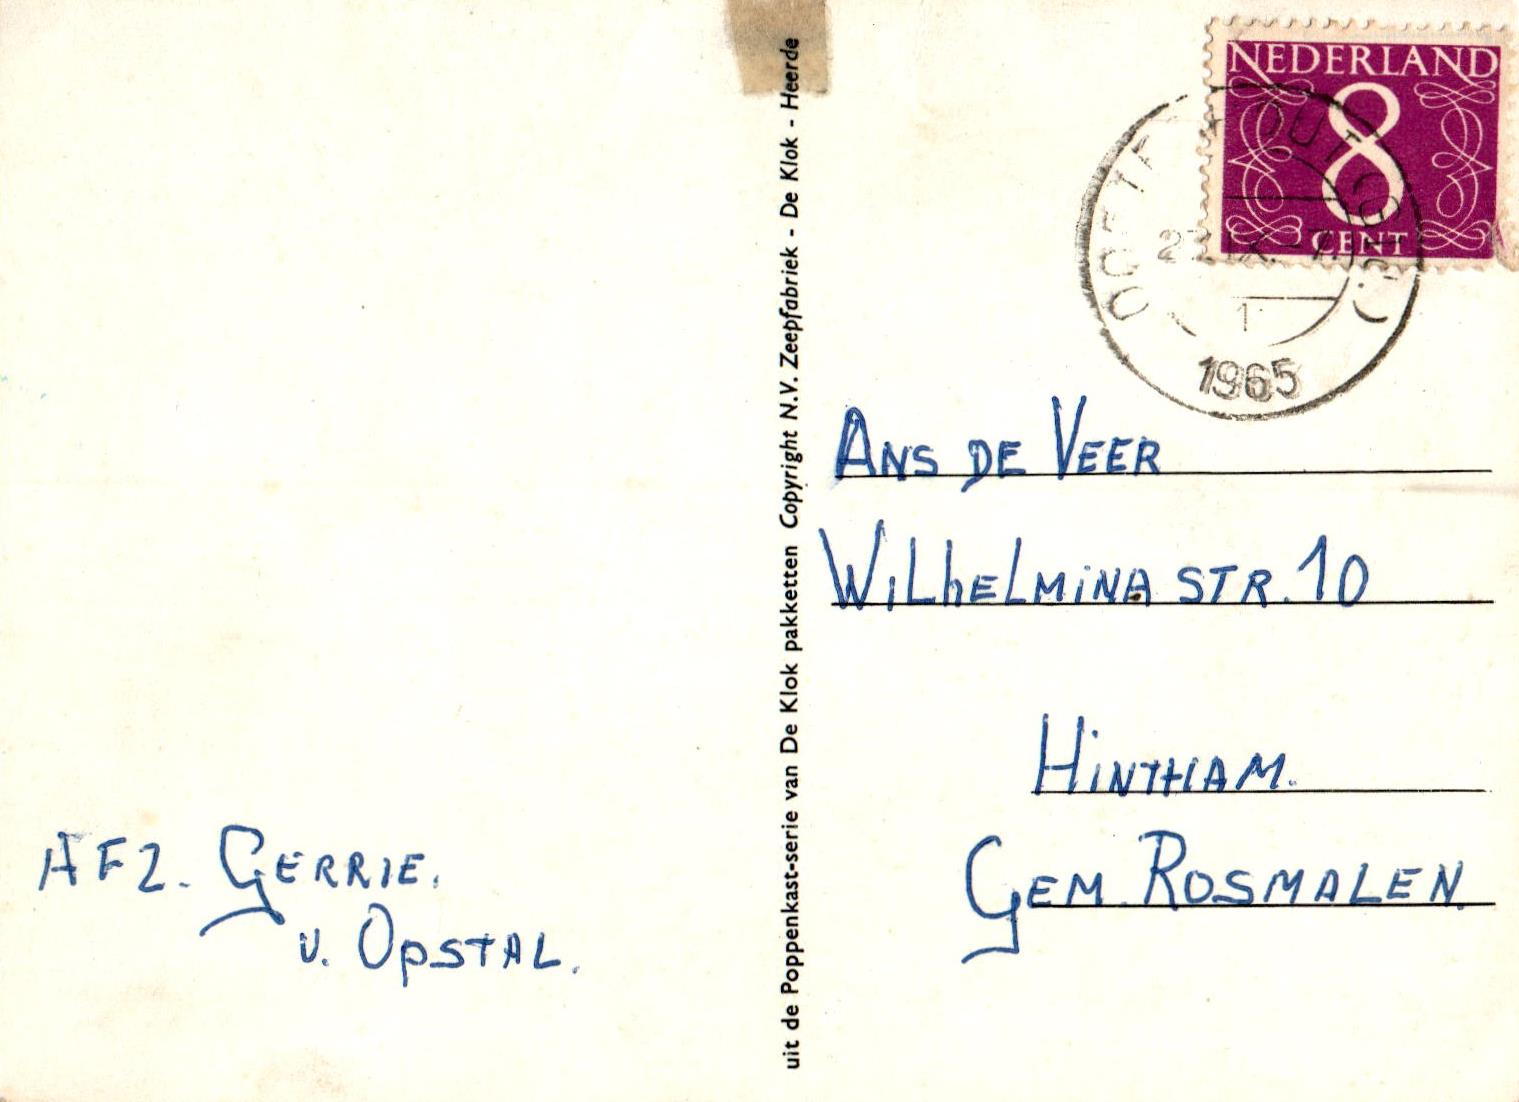 NEDERLAND
8
CENT
1
1965
uit de Poppenkast-serie van De Klok pakketten Copyright N.V. Zeepfabriek - De Klok - Heerde
ANS DE VEER
WILhELMiNA STR. 10
HiNTHAM.
GEM. ROSMALEN.
AFZ. GERRIE.
v. OpSTAL.